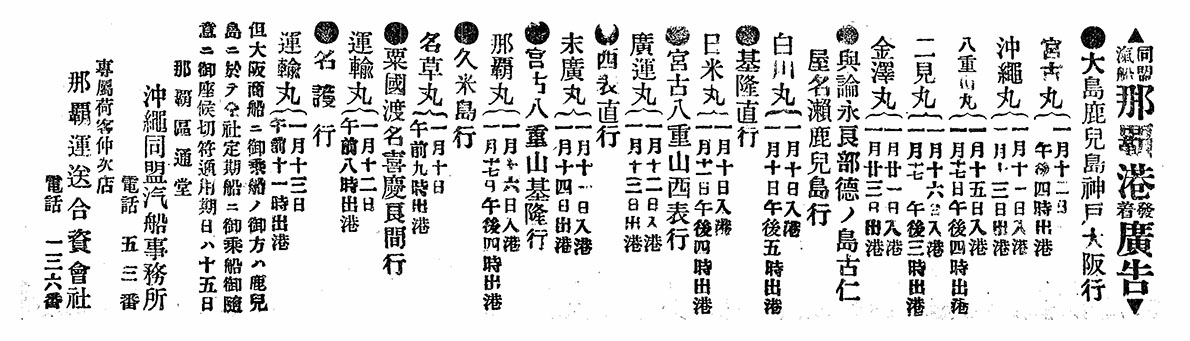 ▲同盟汽船那覇港發着廣告▼
●大島鹿兒島神戸大阪行
宮古丸 一月十二日 午後四時出港
沖繩丸 一月十一日入港 一月十三日出港
八重山丸 一月十五日入港 一月十七日午後四時出港
二見丸 一月十六日入港 一月十七 午後三時出港
金澤丸 一月廿一日入港 一月廿三日出港
●與論永良部德ノ島古仁
屋名瀬鹿兒島行
白川丸 一月十日入港 一月十日午後五時出港
●基隆直行
日米丸 一月十日入港 一月十一日午後四時出港
●宮古八重山西表行
廣運丸 一月十二日入港 一月十三日出港
●西表直行
末廣丸 一月十一日入港 一月十四日出港
●宮古八重山基隆行
那覇丸 一月十六日入港 一月十七日午後四時出港
●久米島行
名草丸 一月十日 午前九時出港
●粟國渡名喜慶良間行
運輸丸 一月十二日 午前八時出港
●名護行
運輸丸 一月十三日 午前十一時出港
但大阪商船ニ御乘船ノ御方ハ鹿兒
島ニ於テ仝社定期船ニ御乘船御隨
意ニ御座候切符通用期日ハ十五日
那覇區通堂
沖繩同盟汽船事務所
電話 五三番
專屬荷客仲次店
那覇運送合資會社
電話 一三六番